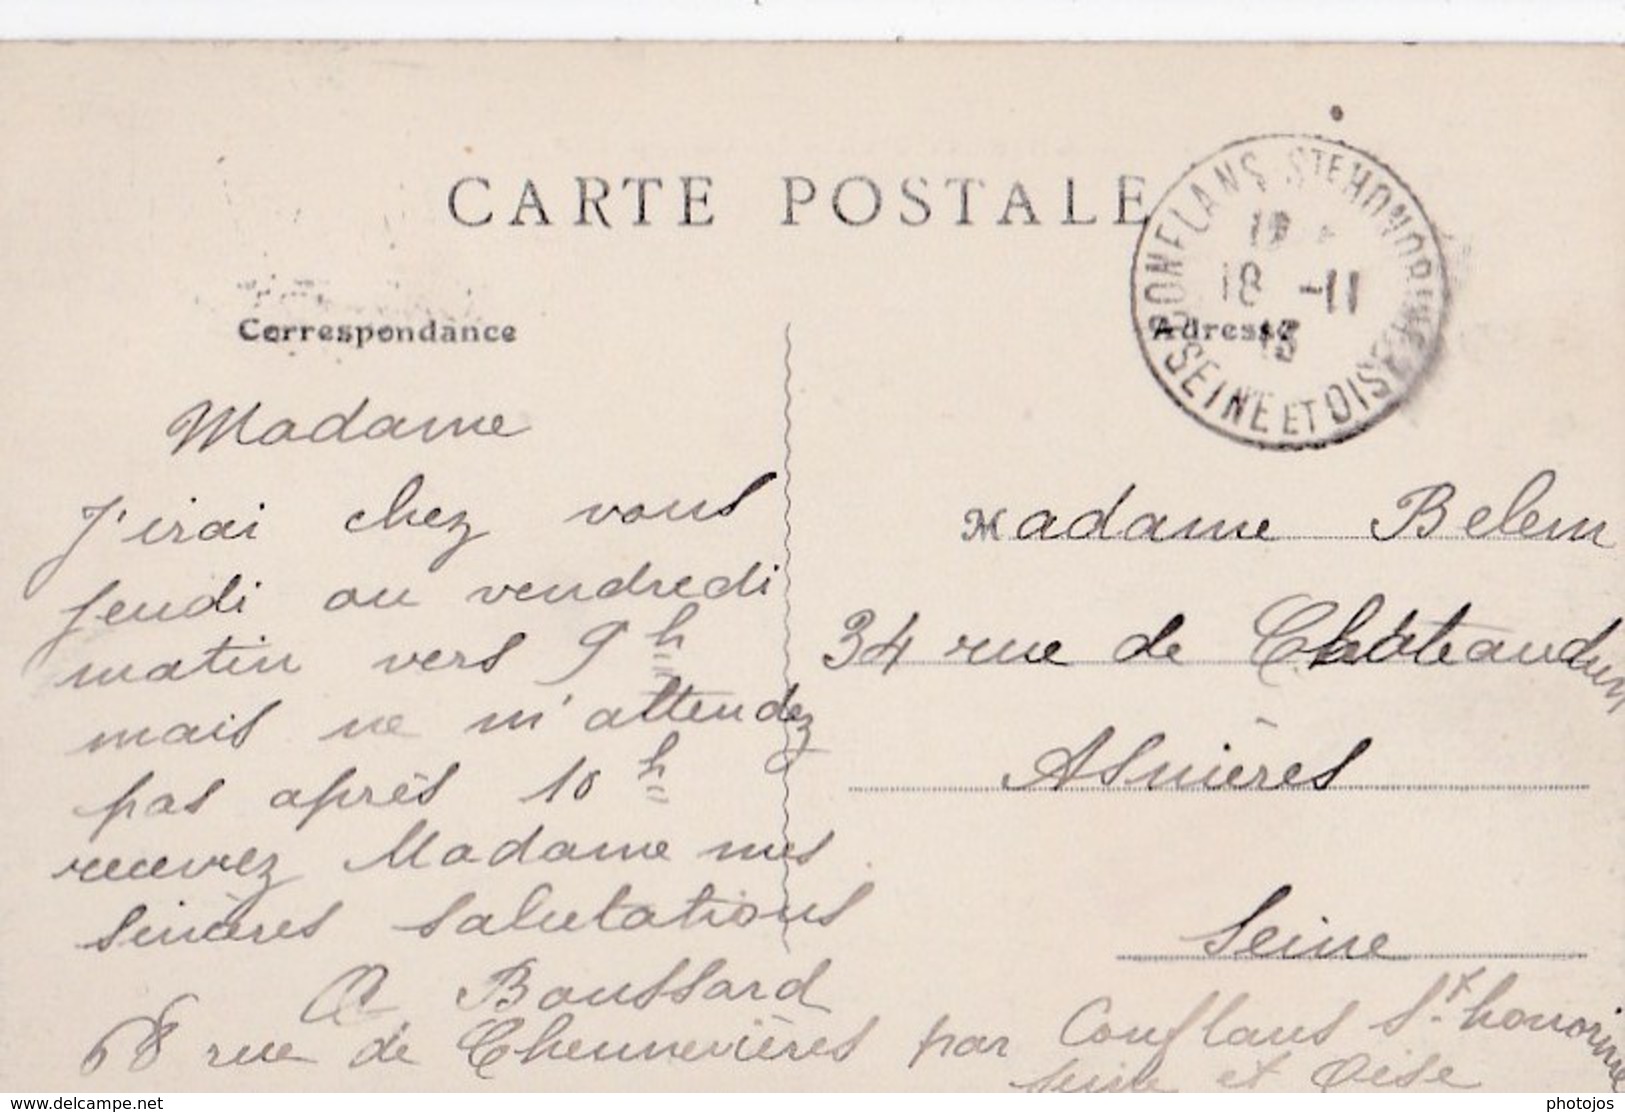 CARTE POSTALE
CONFLANS-STE HONORINE
18 -11
13
SEINE ET OISE
Correspondance
Adresse
Madame
J'irai chez vous
jeudi ou vendredi
matin vers 9 h
mais ne m'attendez
pas après 10 h
recevez Madame mes
sincères salutations
A Boussard
68 rue de Chennevières par Conflans St honorine
Seine et Oise
Madame Belem
34 rue de Châteaudun
Asnières
Seine
www.delcampe.net
photojos